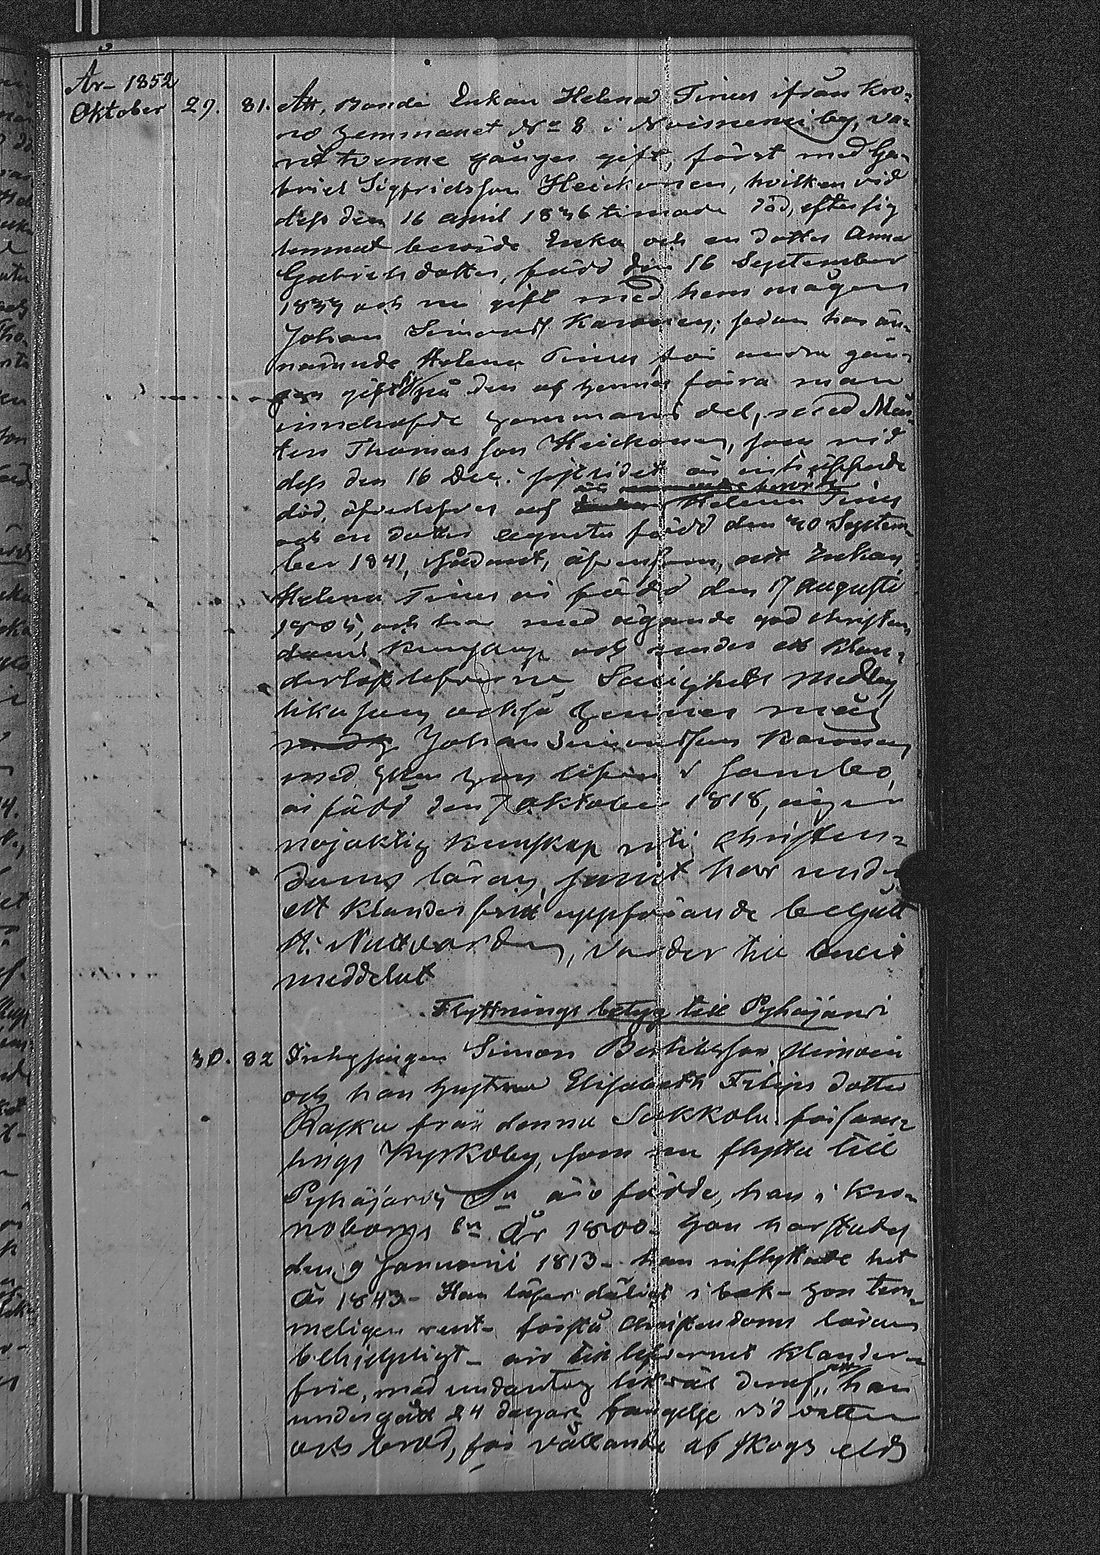 År 1852
Oktober 29. 81. Att, Bonde Enkan Helena Tirius ifrån Kro-
no hemmanet No 8 i Noisniemi by, va-
rit tvenne gånger gift, först med Ga-
briel Sigfridsson Heickonen, hvilken vid
dess den 16 april 1836 timade död, efter sig
lemnat berörde Enka och en dotter Anna
Gabrielsdotter, född den 16 September
1834 och nu gift med hemmågen
Johan Simonss Karonen; sedan har än-
nämnde Helena Tirius för andra gån-
gen gift sig på den af hennes förra man
innehafde hemmans del, med Mår-
ten Thomasson Heickonen, som vid
dess den 16 Dec. sistlidet år inträffade
död, öfverlefves af Helena Tirius
och en dotter Augusta född den 20 Septem-
ber 1841, sådant, äfvensom, att Enkan
Helena Tirius är född den 17 augusti
1805, och har med ägande god christen-
doms kunskap och under ett klan-
derlöst lefverne Salighets medlen
likasom också hennes måg
Johan Simonsson Karonen
med hvilken hon lefver i sambo,
är född den 7 oktober 1818, äger
nöjaktig kunskap uti Christen-
doms läran, samt har under
ett klanderfritt uppförande begått
H. Nattvarden, varder till bevis
meddelat
Flyttnings betyg till Pyhäjärvi
30. 82 Inhysingen Simon Bertilsson
och han hustru Elisabeth Filips dotter
Raska från denna Sakkola församl-
lings Kyrkoby, som nu flytta till
Pyhäjärvi Sn äro födde, han i Kro-
noborgs Sn År 1800. hon härstädes
den 9 Januarii 1813 - han inflyttade hit
År 1843 - Han läser dåligt i bok - hon tem-
meligen rent - förstå Christendoms läran
behjelpligt - äro till lefvernet klander-
frie, med undantag likväl deraf, att han
undergått 24 dagars fängelse vid vatten
och bröd, för vållande af skogs eld